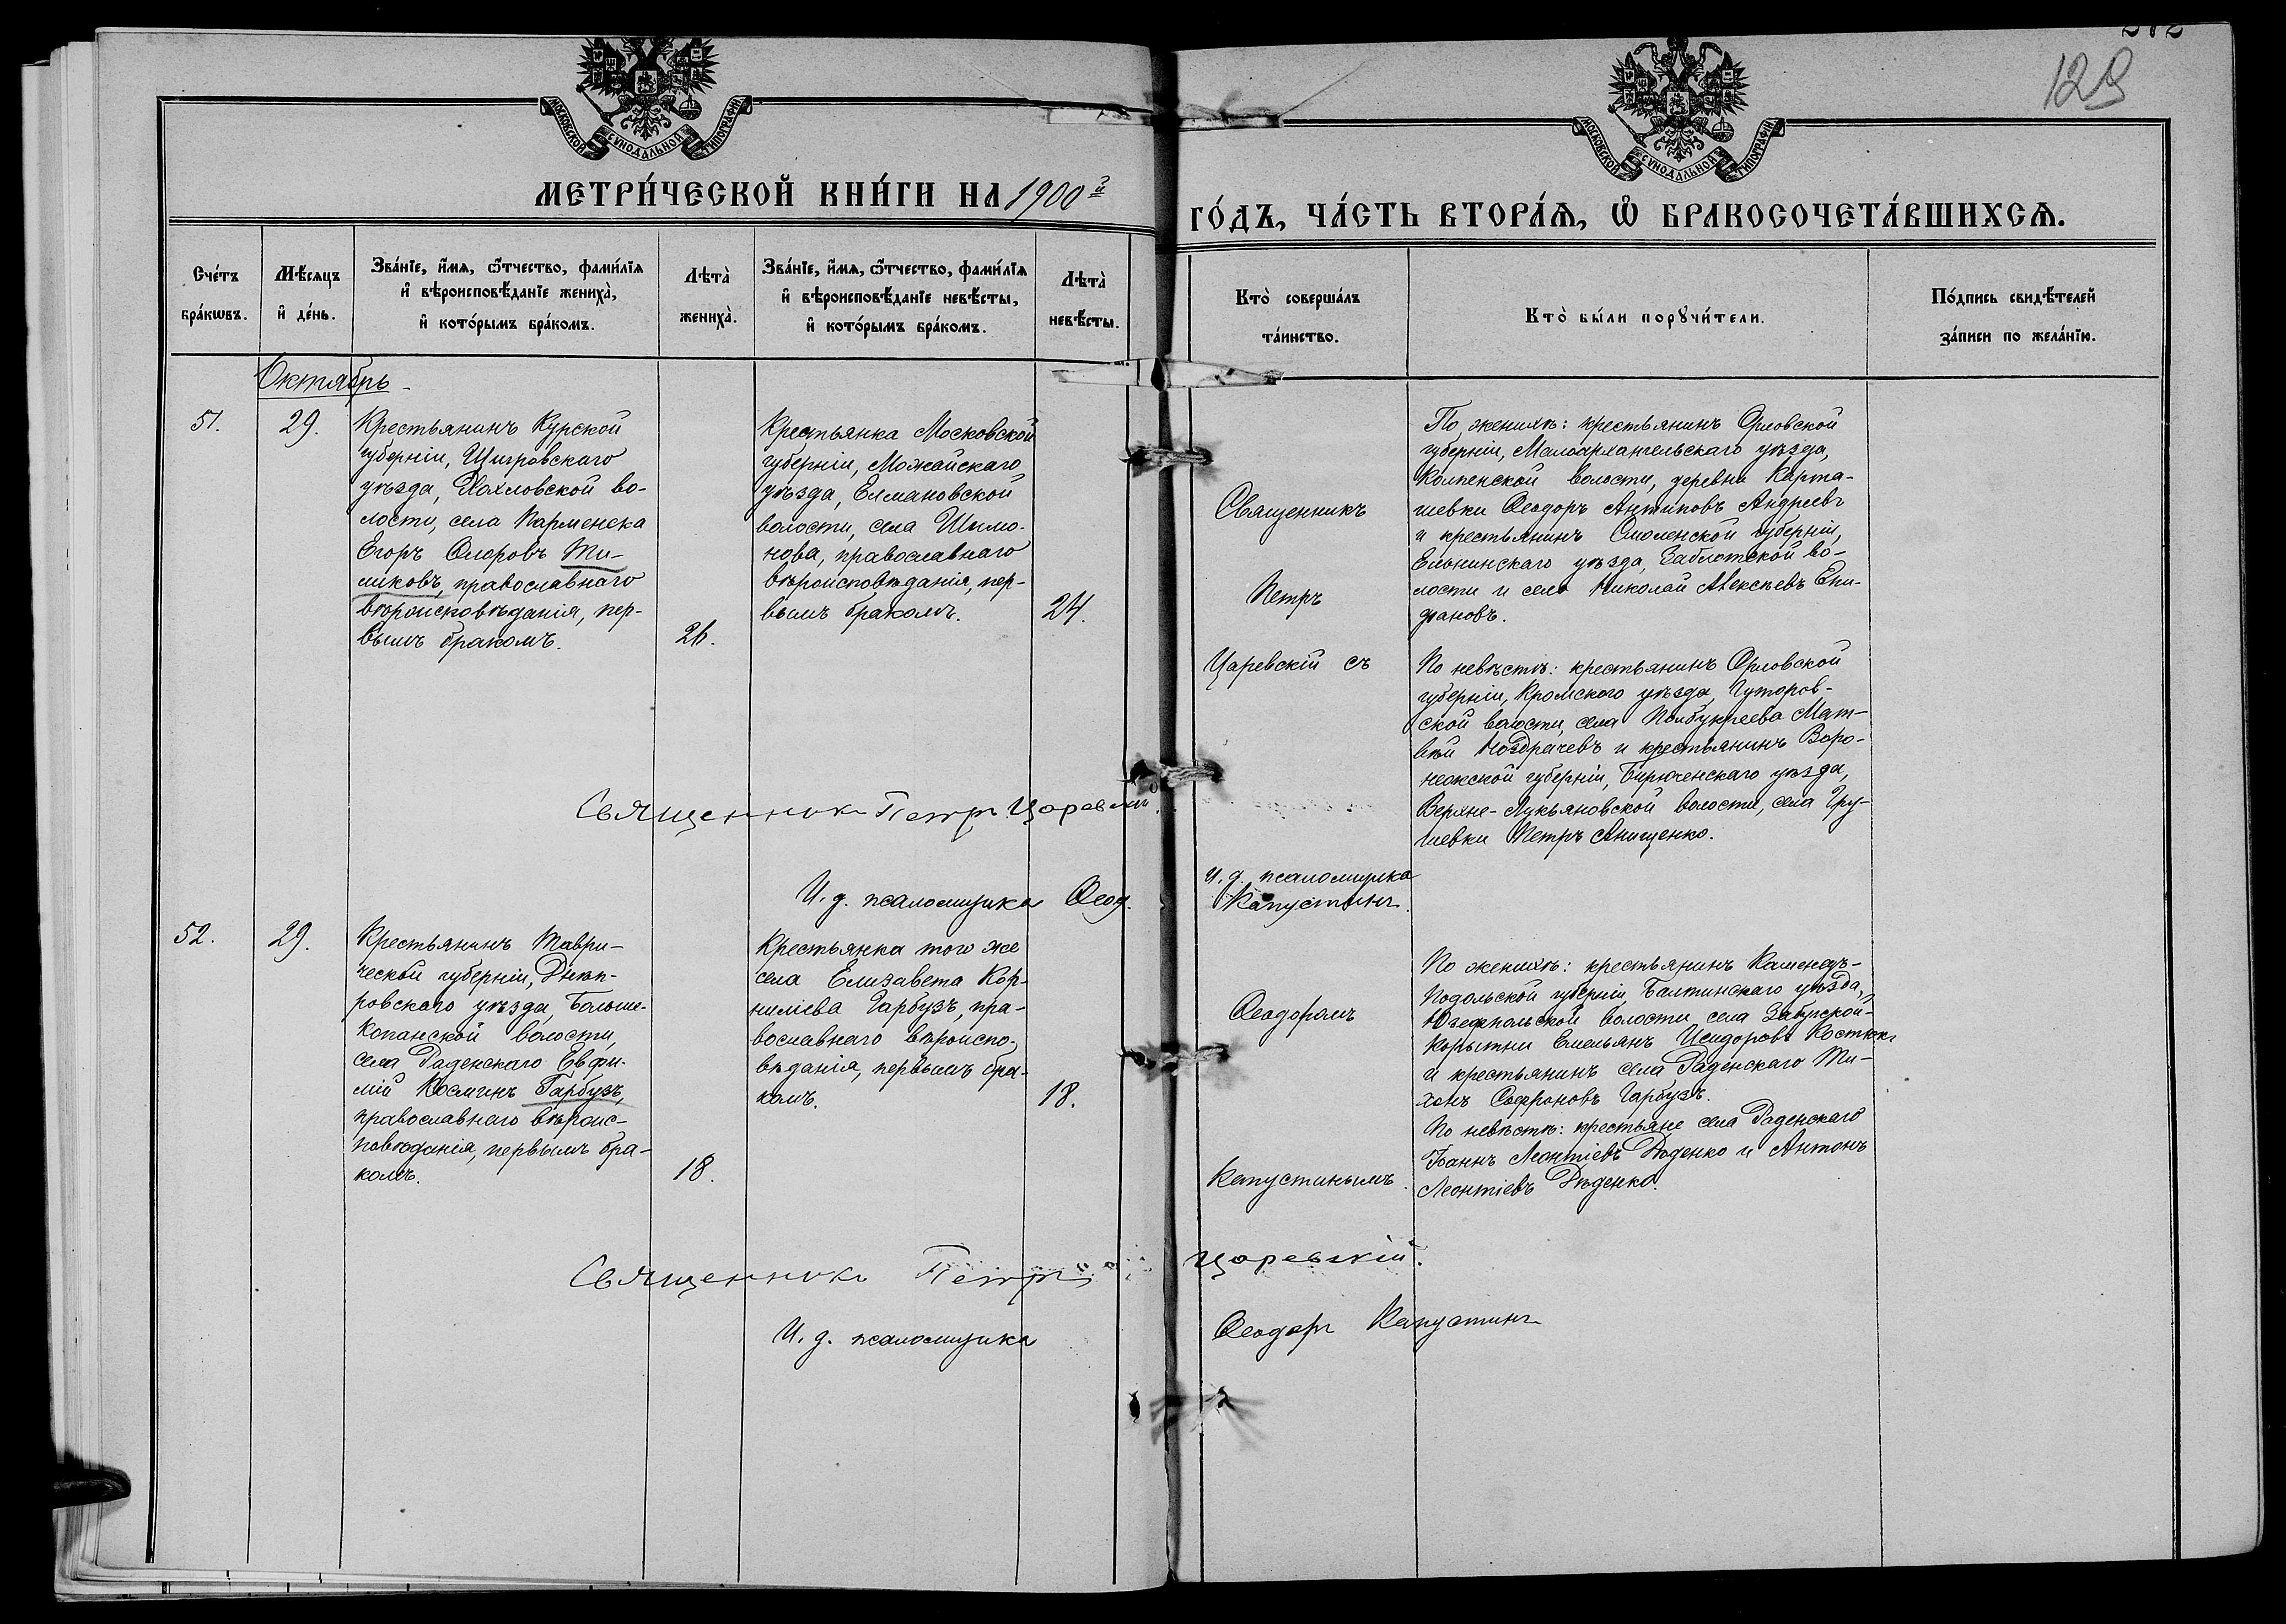 282
129
МОСКОВСКОЙ СѴНОДАЛЬНОЙ ТИПОГРАФІИ
МОСКОВСКОЙ СѴНОДАЛЬНОЙ ТИПОГРАФІИ
МЕТРИ́ЧЕСКОЙ КНИ́ГИ НА 1900й
ГО́ДЪ, ЧА́СТЬ ВТОРА́Я, Ѽ БРАКОСОЧЕТА́ВШИХСЯ.
Сче́тъ
бра́кѡвъ.
Мѣ́сяцъ
и҆ де́нь.
Зва́нїе, и҆́мя, ѻ҆́тчество, фами́лїя
и҆ вѣроисповѣ́данїе жениха̀,
и҆ кото́рымъ бра́комъ.
Лѣта̀
жениха̀.
Зва́нїе, и҆́мя, ѻ҆́тчество, фами́лїя
и҆ вѣроисповѣ́данїе невѣ́сты,
и҆ кото́рымъ бра́комъ.
Лѣта̀
невѣ́сты.
Кто̀ соверша́лъ
та́инство.
Кто̀ бы́ли порꙋчи́тели.
По́дпись свидѣ́телей
за́писи по жела́нїю.
Октябрь
51.
29.
Крестьянинъ Курской
губерніи, Щигровскаго
уѣзда, Хохловской во-
лости, села Пармснска
Егоръ Флоровъ Ти-
щиковъ, православнаго
вѣроисповѣданія, пер-
вымъ бракомъ.
26.
Крестьянка Московской
губерніи, Можайскаго
уѣзда, Елмановской
волости, села Шимо-
нова, православнаго
вѣроисповѣданія, пер-
вымъ бракомъ.
24.
Священникъ
Петръ
Царевскій съ
По женихѣ: крестьянинъ Орловской
губерніи, Малоархангельскаго уѣзда,
Колпенской волости, деревни Карта-
шевки Ѳеодоръ Антиповъ Андреевъ
и крестьянинъ Смоленской губерніи,
Ельнинскаго уѣзда, Заблотской во-
лости и села Николай Алексѣевъ Епи-
фановъ.
По невѣстѣ: крестьянинъ Орловской
губерніи, Кромскаго уѣзда, Гуторов-
ской волости, села Полбукреева Мат-
вѣй Ноздрачевъ и крестьянинъ Воро-
нежской губерніи, Бирюченскаго уѣзда,
Верхне-Лукьяновской волости, села Гру-
шевки Петръ Анищенко.
Священникъ Петръ Царевскій
И. д. псаломщика Ѳеод.
и. д. псаломщика
Капустинъ.
52.
29.
Крестьянинъ Таври-
ческой губерніи, Днѣп-
ровскаго уѣзда, Больше-
Копанской волости,
села Раденскаго Евфи-
мій Космич Гарбузъ,
православнаго вѣроис-
повѣданія, первымъ бра-
комъ.
18.
Крестьянка того же
села Елизавета Кор-
ниліева Гарбузъ, пра-
вославнаго вѣроиспо-
вѣданія, первымъ бра-
комъ.
18.
Ѳеодоромъ
Капустинымъ.
По женихѣ: крестьянинъ Каменецъ-
Подольской губерніи, Балтинскаго уѣзда,
Югефпольской волости, села
Корытни Емельянъ Исидоровъ Костюкъ
и крестьянинъ села Раденскаго Ти-
хонъ Софроновъ Гарбузъ.
По невѣстѣ: крестьяне села Раденскаго
Іоаннъ Леонтіевъ Дѣденко и Антонъ
Леонтіевъ Дѣденко.
Священникъ Петръ Царевскій.
И. д. псаломщика Ѳеодоръ Капустинъ